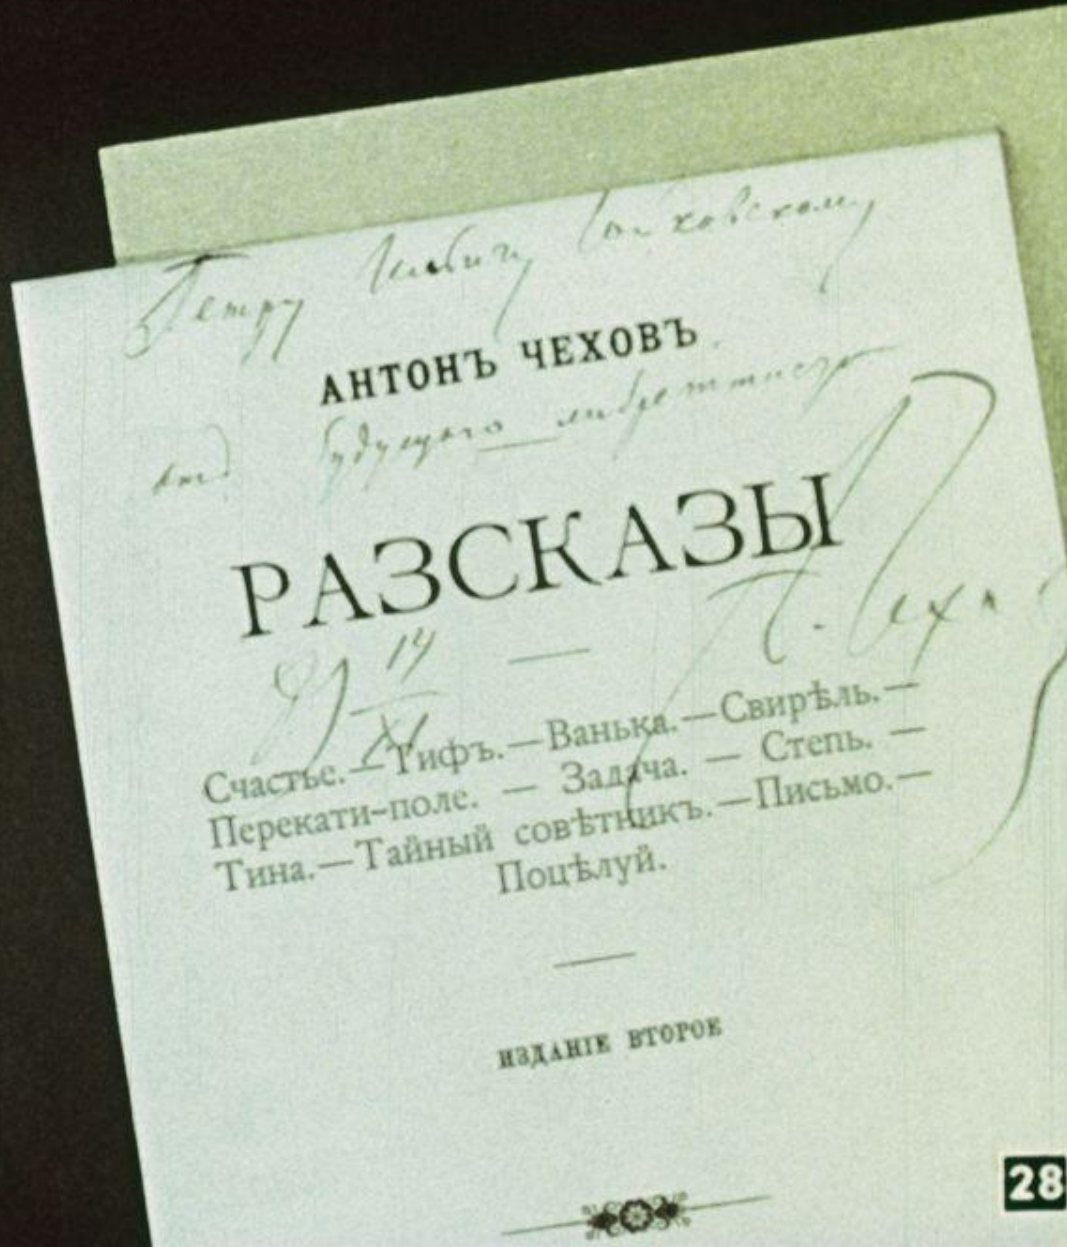 Петру Ильичу Чайковскому
АНТОНЪ ЧЕХОВЪ.
отъ будущего либреттиста
РАЗСКАЗЫ
А. Чехов
89 14/XI
Счастье.—Тифъ.—Ванька.—Свирѣль.—
Перекати-поле. — Задача. — Степь. —
Тина.—Тайный совѣтникъ.—Письмо.—
Поцѣлуй.
ИЗДАНІЕ ВТОРОЕ
28